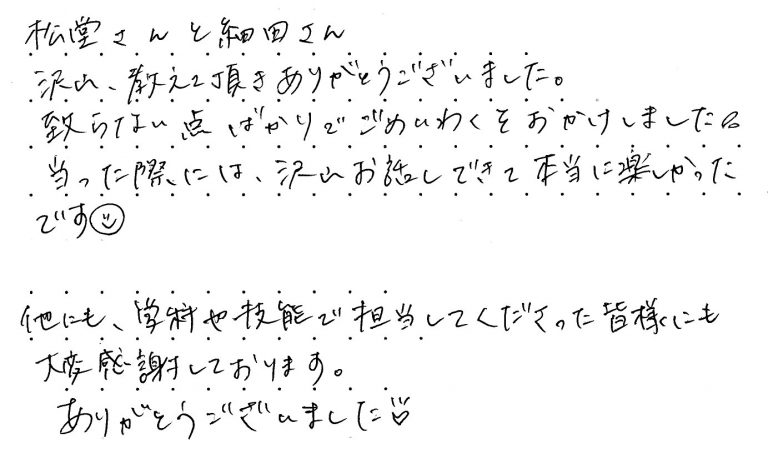 松堂さんと細田さん
沢山、教えて頂きありがとうございました。
致らない点ばかりでごめいわくをおかけしました
当った際には、沢山お話しできて本当に楽しかった
です
他にも、学科や技能で担当してくださった皆様にも
大変感謝しております。
ありがとうございました